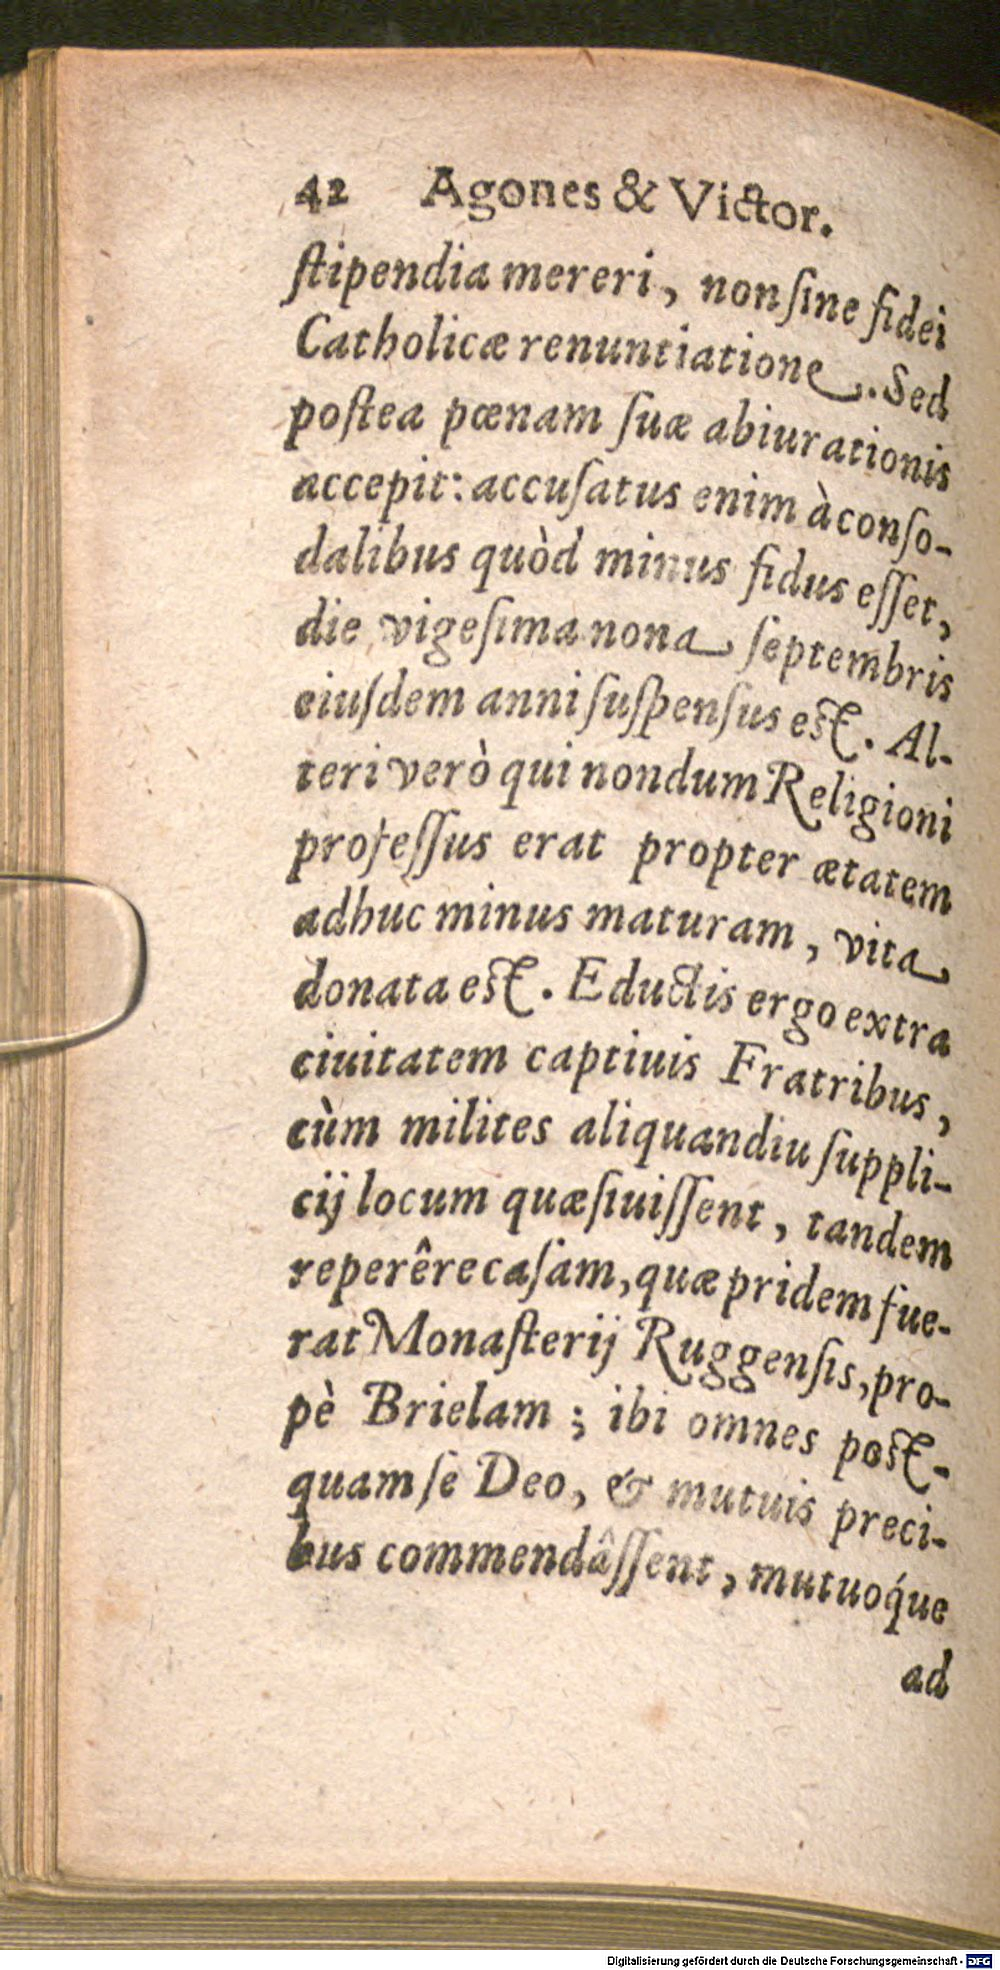 42 Agones & Victor.
ſtipendia mereri, non ſine fidei
Catholicæ renuntiatione. Sed
poſtea pœnam ſuæ abiurationis
accepit: accuſatus enim à conſo-
dalibus quòd minus fidus eſſet,
die vigeſima nona ſeptembris
eiuſdem anni ſuſpenſus eſt. Al-
teri verò qui nondum Religioni
profeſſus erat propter ætatem
adhuc minus maturam, vita
donata eſt. Eductis ergo extra
ciuitatem captiuis Fratribus,
cùm milites aliquandiu ſuppli-
cij locum quæſiuiſſent, tandem
reperêre caſam, quæ pridem fue-
rat Monaſterij Ruggenſis, pro-
pè Brielam; ibi omnes poſt-
quam ſe Deo, & mutuis preci-
bus commendâſſent, mutuoq́ue
ad
Digitalisierung gefördert durch die Deutsche Forschungsgemeinschaft - DFG